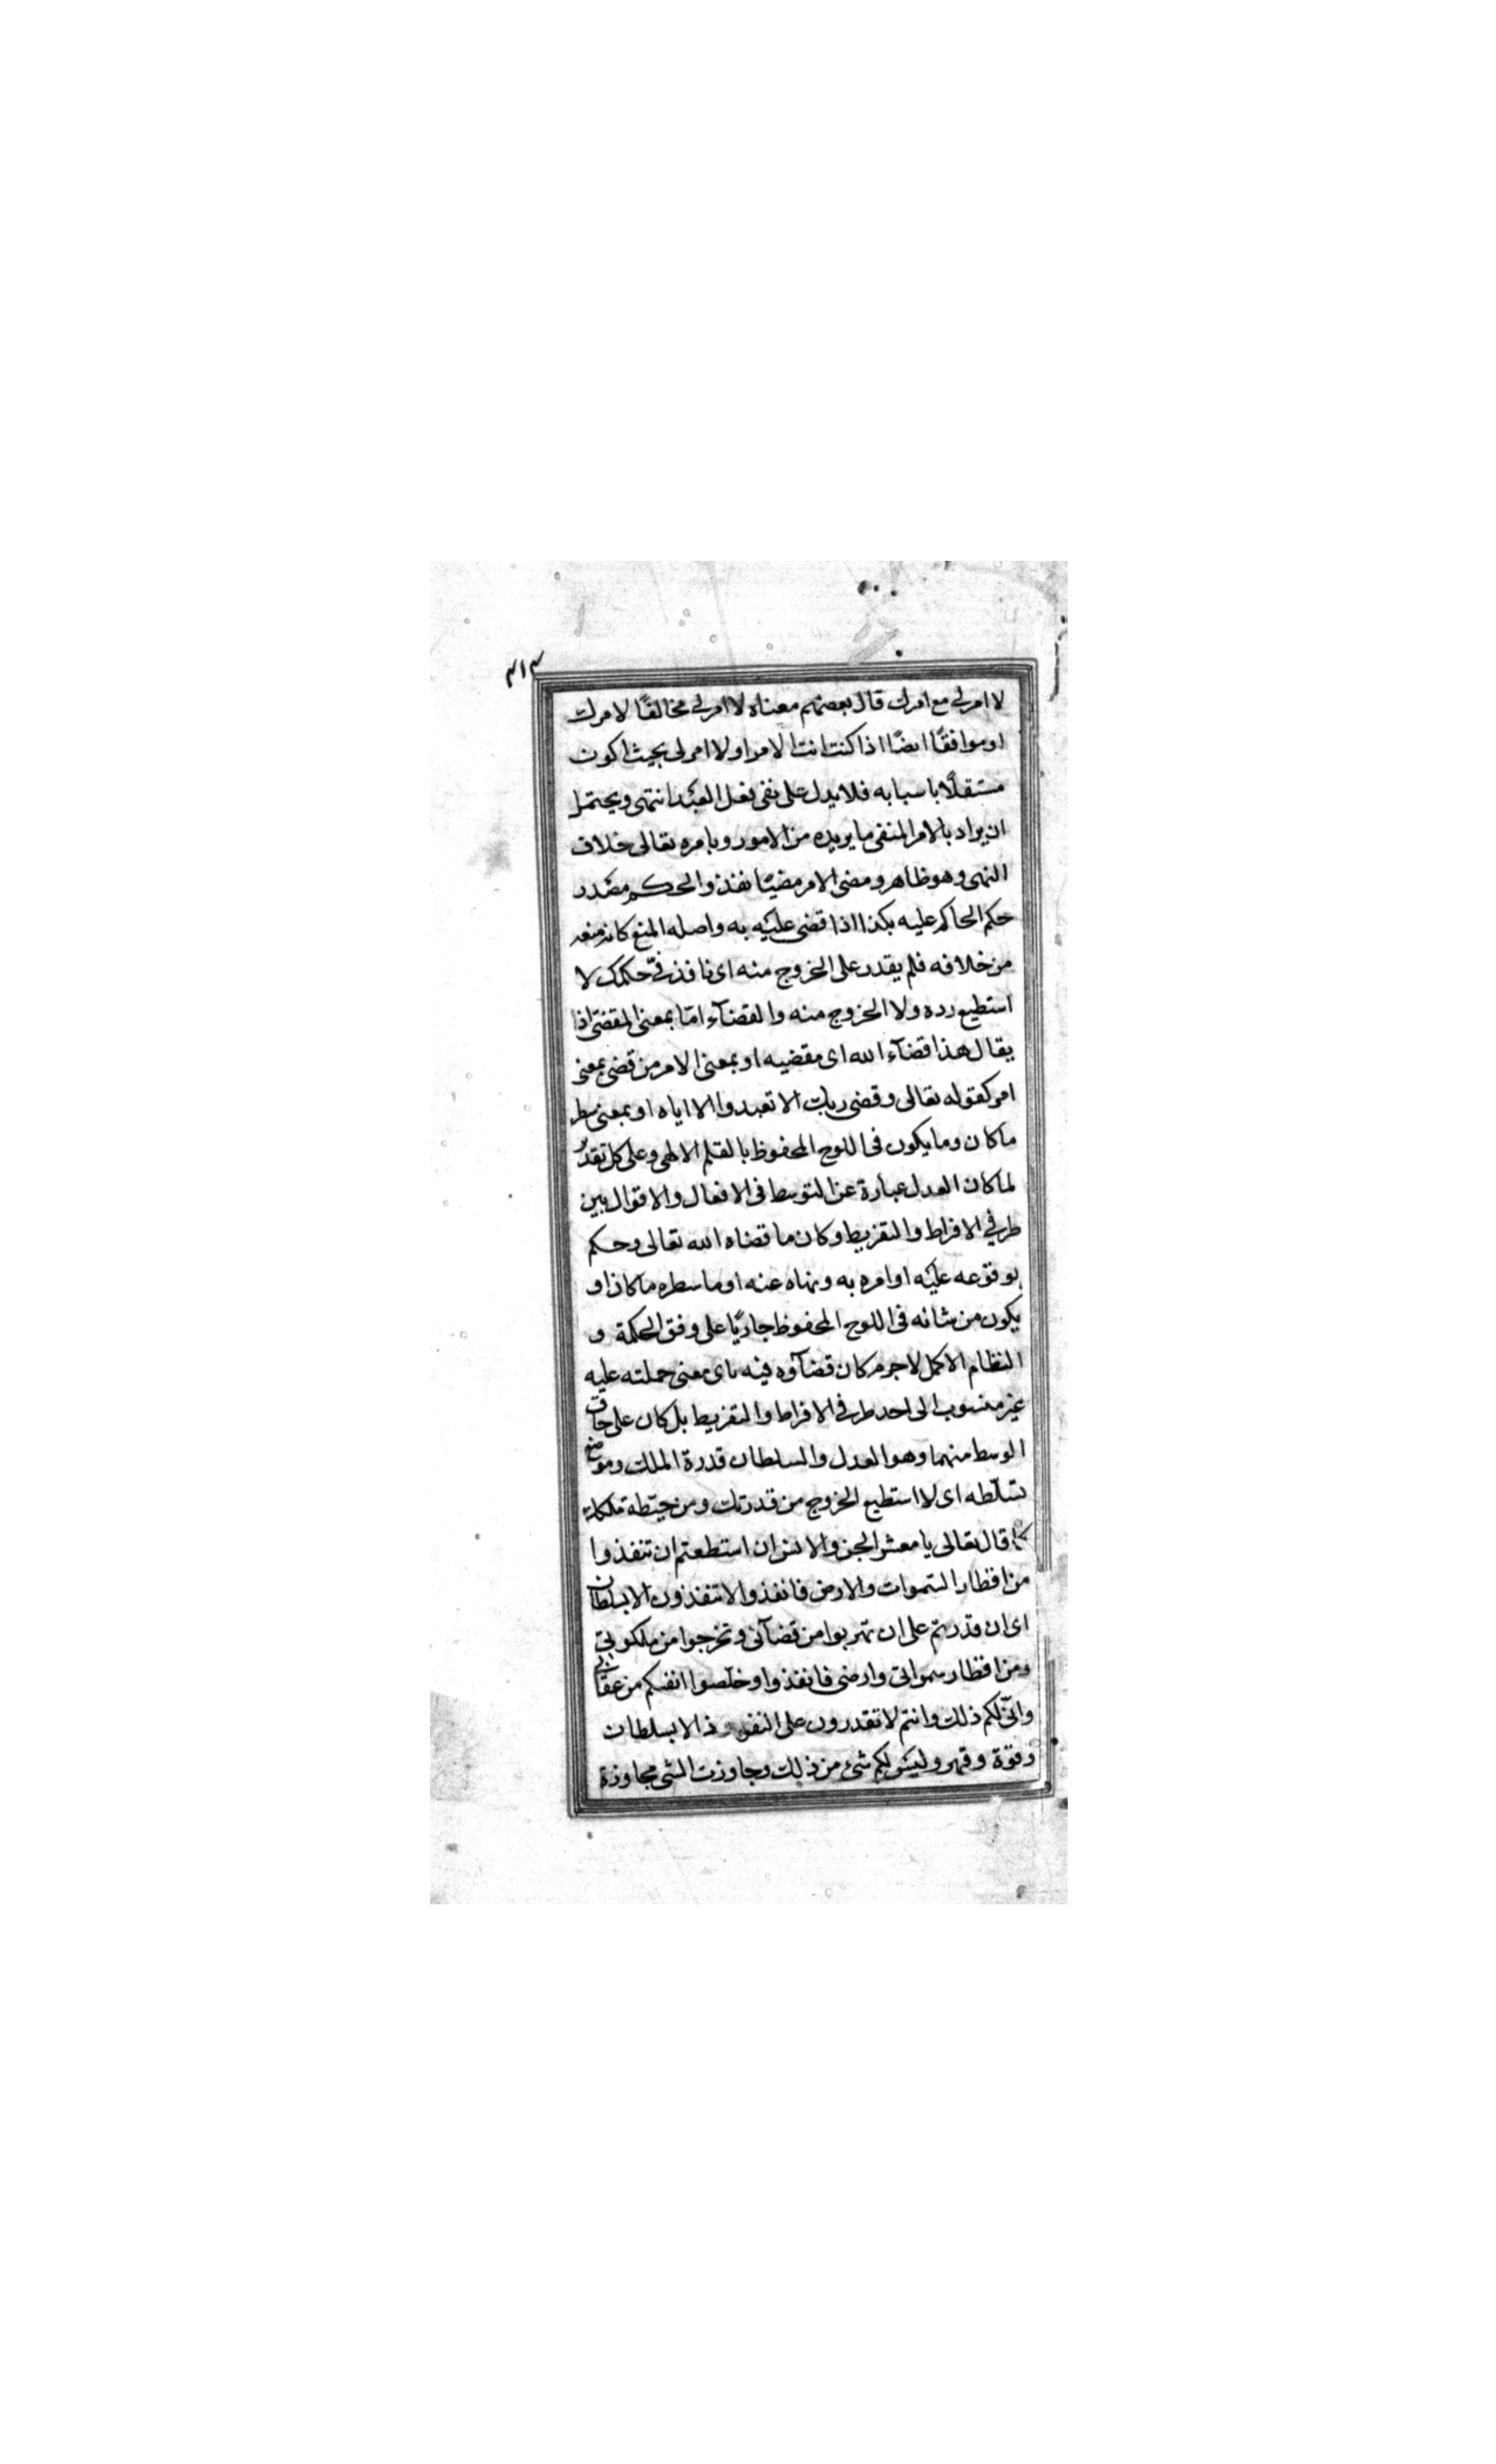 ٣١٣
لا امر لى مع امرك قال بعضهم معناه لا امر لى مخالفًا لامرك
او موافقًا ايضًا اذا كنت انت الامر او لا امر لى بحيث اكون
مستقلًا باسبابه فلا يدل على نفى فعل العبد انتهى ويحتمل
ان يراد بالامر المنفى ما يريده من الامور وبامره تعالى خلاف
النهى وهو ظاهر ومضى الامر مضيًا نفذ والحكم مصدر
حكم الحاكم عليه بكذا اذا قضى عليه به واصله المنع كانه منعه
من خلافه فلم يقدر على الخروج منه اى نافذ فىّ حكمك لا
استطيع رده ولا الخروج منه والقضآء امّا بمعنى المقضى اذا
يقال هذا قضآء الله اى مقضيه او بمعنى الامر من قضى بمعنى
امر كقوله تعالى وقضى ربك الا تعبدوا الا اياه او بمعنى سطر
ما كان وما يكون فى اللوح المحفوظ بالقلم الالهى وعلى كل تقدير
لما كان العدل عبارة عن التوسط فى الافعال والاقوال بين
طرفي الافراط والتفريط وكان ما قضاه الله تعالى وحكم
بوقوعه عليه او امره به ونهاه عنه او ما سطره ما كان او
يكون من شانه فى اللوح المحفوظ جاريًا على وفق الحكمة و
النظام الاكمل لا جرم كان قضآؤه فيه باى معنى حملته عليه
غير منسوب الى احد طرفي الافراط والتفريط بل كان على حاق
الوسط منهما وهو العدل والسلطان قدرة الملك وموضع
تسلّطه اى لا استطيع الخروج من قدرتك ومن حيّطة ملكك
كما قال تعالى يا معشر الجن والانس ان استطعتم ان تنفذوا
من اقطار السّموات والارض فانفذوا لا تنفذون الا بسلطان
اى ان قدرتم على ان تهربوا من قضآئى وتخرجوا من ملكوتى
ومن اقطار سمواتى وارضى فانفذوا وخلّصوا انفسكم من عقابى
وانّى لكم ذلك وانتم لا تقدرون على النفوذ الا بسلطان
وقوة وقهر وليس لكم شئ من ذلك وجاوزت الشى مجاوزة